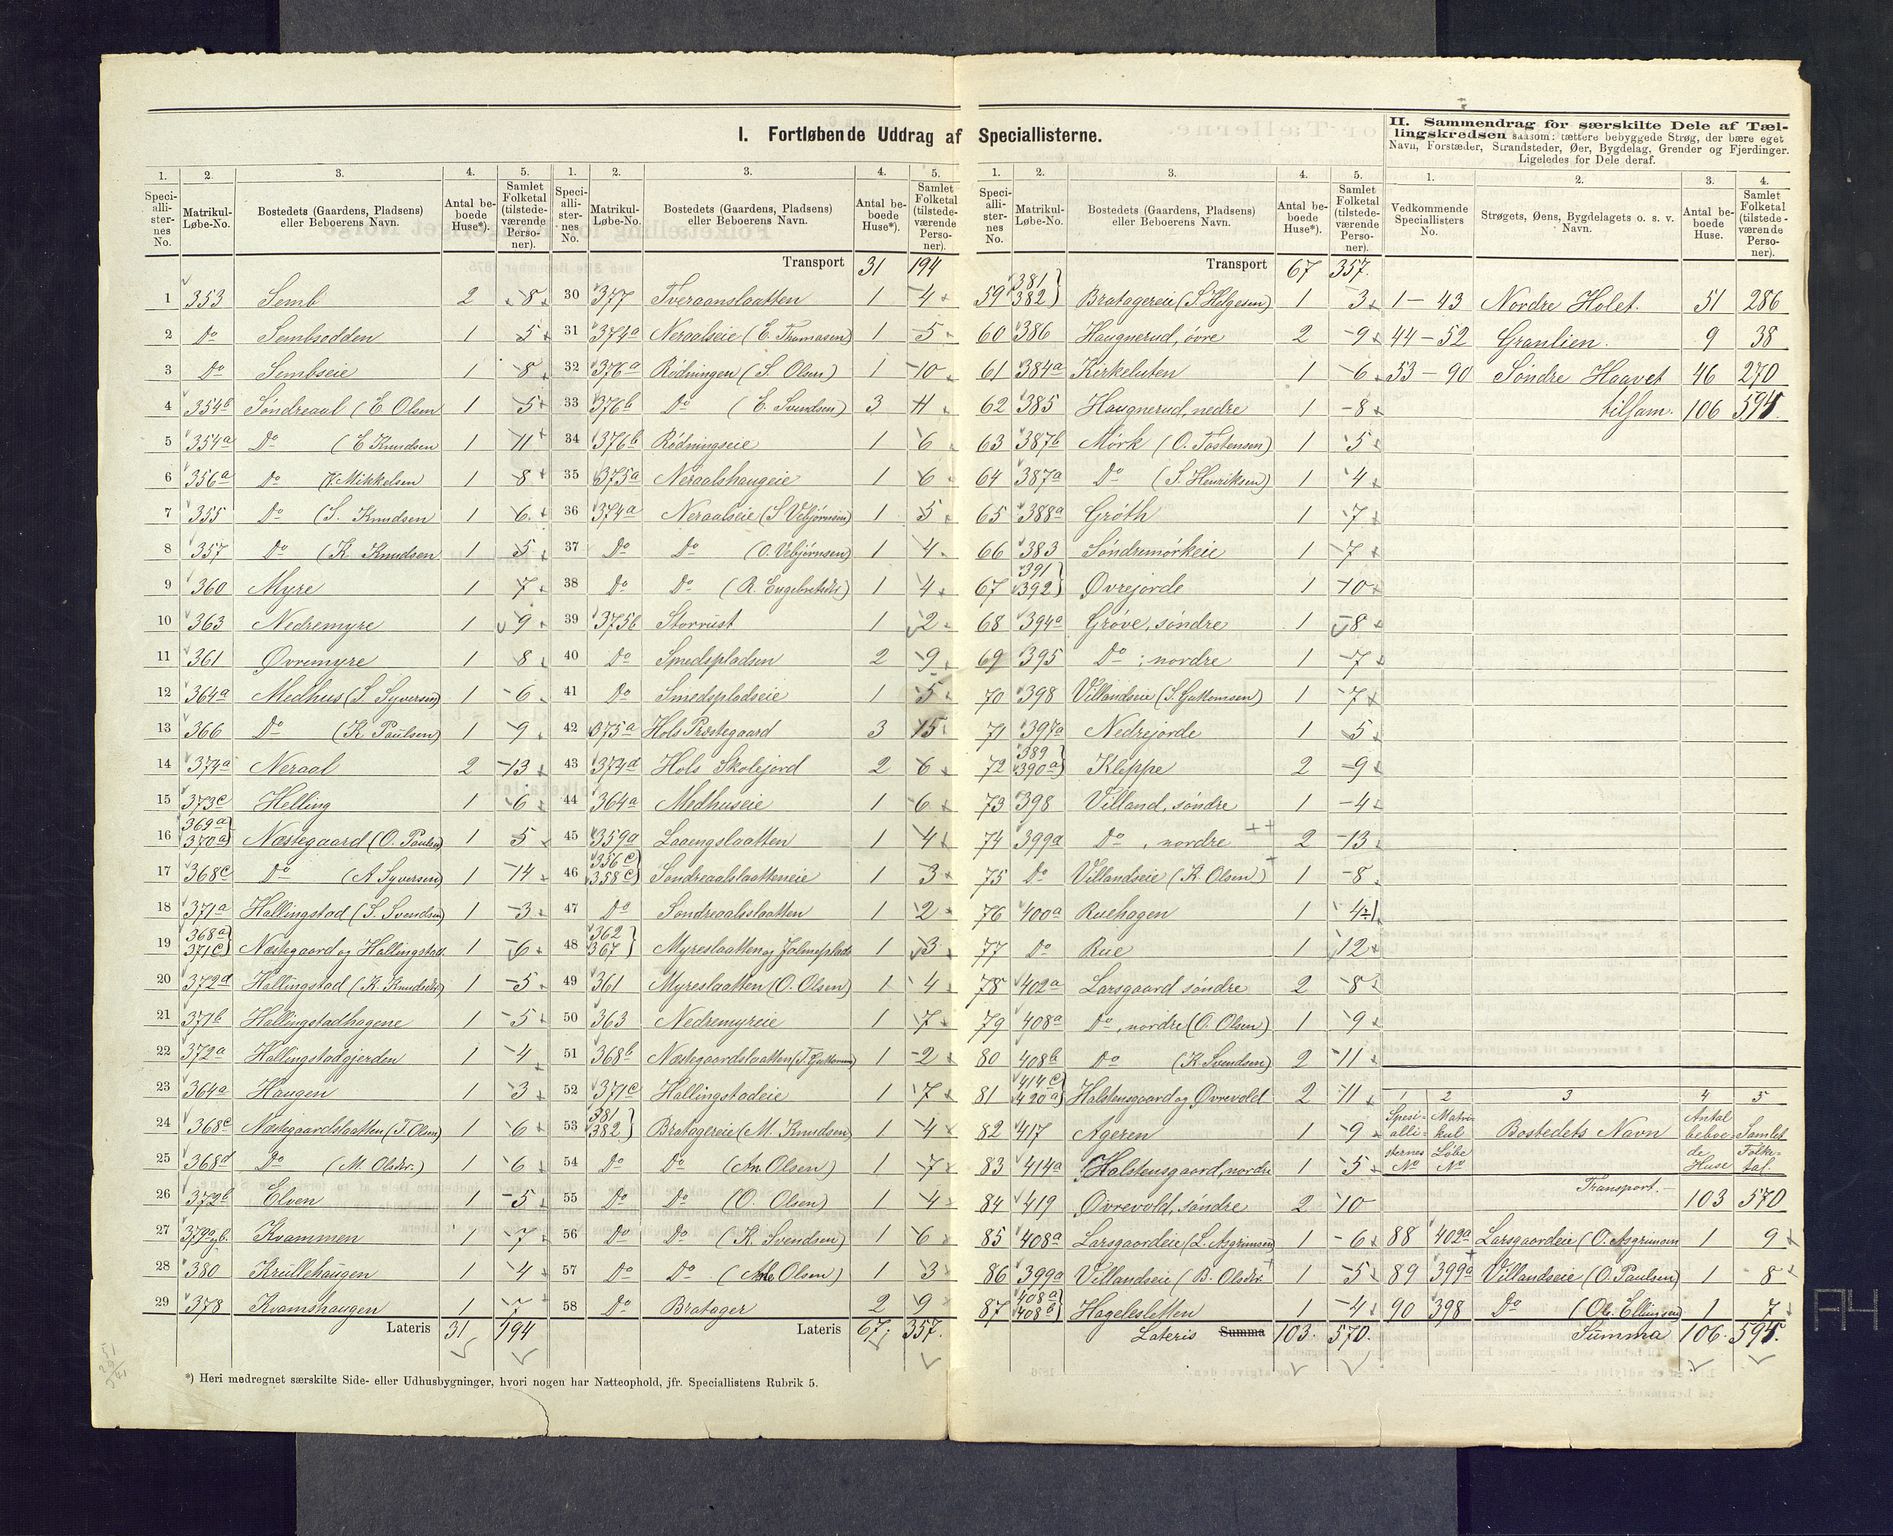 I. Fortløbende Uddrag af Speciallisterne.
1. 2. 3. 4. 5.
Speciallisternes No. Matrikul-Løbe-No. Bostedets (Gaardens, Pladsens) eller Beboerens Navn. Antal beboede Huse*). Samlet Folketal (tilstedeværende Personer).
1 353 Semb 2 8
2 Do Sembsodden 1 5
3 Do Sembseie 1 8
4 354b Søndreaal (E. Olsen 1 5
5 354a Do (E Knudsen 1 11
6 356a Do (K Mikkelsen 1 8
7 355 Do (S. Knudsen 1 6
8 357 Do (K Knudsen 1 5
9 360 Myre 1 7
10 363 Nedremyre 1 9
11 361 Øvremyre 1 8
12 364a Medhus (S. Syversen) 1 6
13 366 Do (K Paulsen) 1 9
14 374a Neraal 2 13
15 373c Helling 1 6
16 369a 370a} Næstegaard (O. Paulsen 1 5
17 368c Do (A Syversen) 1 14
18 371a Hallingstad (S. Svendsen 1 3
19 368a 371c} Næstegaard og Hallingstad 1 6
20 372d Hallingstad (K Knudsdtr) 1 5
21 371b Hallingstadhagene 1 5
22 372a Hallingstadgjerden 1 4
23 364a Haugen 1 3
24 368c Næstegaardslaatten (T. Olsen) 1 6
25 368d Do (M. Olsdtr.) 1 6
26 372b Elven 1 5
27 379a,b. Kvammen 1 7
28 380 Krullehaugen 1 4
29 378 Kvamshaugen 1 7
Lateris 31 194
*) Heri medregnet særskilte Side- eller Udhusbygninger, hvori nogen har Natteophold, jfr. Speciallistens Rubrik 5.
1. 2. 3. 4. 5.
Speciallisternes No. Matrikul-Løbe-No. Bostedets (Gaardens, Pladsens) eller Beboerens Navn. Antal beboede Huse*). Samlet Folketal (tilstedeværende Personer).
Transport 31 194
30 377 Tveraanslaatten 1 4
31 374a Neraalseie (E. Thomasen) 1 5
32 376a Rødningen (S Olsen) 1 10
33 376b Do (E. Svendsen) 3 11
34 376b Rødningseie 1 6
35 373a Neraalshaugeie 1 6
36 374a Neraalseie (S Vebjørnsen) 1 5
37 Do Do (O. Vebjørnsen) 1 4
38 Do Do (R. Engebretsdtr) 1 4
39 375b Storrust 1 2
40 Do Smedspladsen 2 9
41 Do Smedspladseie 1 5
42 375a Hols Præstegaard 3 15
43 374d Hols Skolejord 2 6
44 364a Medhuseie 1 6
45 359a Laaengslaatten 1 4
46 356c 358c} Søndreaalslaatteneie 1 3
47 Do Søndreaalsslaatten 1 2
48 362 367} Myreslaatten og 1 3
49 361 Myreslaatten (O. Olsen) 1 4
50 363 Nedremyreie 1 7
51 368b Næstegaardslaatten (T. Guttormsen) 1 2
52 371c Hallingstadeie 1 7
53 381 382} Bratagereie (M. Knudsen) 1 4
54 Do Do (An. Olsen) 1 7
55 Do Do (O. Olsen) 1 4
56 Do Do (K. Svendsen) 1 6
57 Do Do ( Olsen) 1 3
58 Do Bratager 2 9
Lateris 67. 357.
1. 2. 3. 4. 5.
Speciallisternes No. Matrikul-Løbe-No. Bostedets (Gaardens, Pladsens) eller Beboerens Navn. Antal beboede Huse*). Samlet Folketal (tilstedeværende Personer).
Transport 67 357.
59 381 382} Bratagereie (S Helgesen) 1 3
60 386 Haugnerud, øvre 2 9
61 384a Kirkeluten 1 6
62 385 Haugnerud, nedre 1 8
63 387b Mørk (O. Tostensen) 1 5
64 387a Do (S. Henriksen) 1 4
65 388a Grøth 1 7
66 383 Søndremørkeie 1 7
67 391 392} Øvrejorde 1 10
68 394a Grøve, søndre 1 8
69 395 Do , nordre 1 7
70 398 Villandseie (S. Guttormsen) 1 7
71 397a Nedrejorde 1 5
72 389 390a} Kleppe 2 9
73 398 Villand, søndre 1 4
74 399a Do , nordre 2 13
75 Do Villandseie (K. Olsen) 1 8
76 400a Ruehagen 1 4
77 Do Rue 1 12
78 402a Larsgaard søndre 2 8
79 408a Do, nordre (O. Olsen) 1 9
80 408b Do (K. Svendsen) 2 11
81 414c 420a} Halstensgaard og Øvrevold 2 11
82 417 Ageren 1 9
83 414a Halstensgaard, nordre 1 5
84 419 Øvrevold, søndre 2 10
85 408a Larsgaardeie (L. Asgrimsen) 1 6
86 399a Villandseie (B. Olsdtr. 1 5
87 408a 408b} Hagelesletten 1 4
Lateris Summa 103. 570.
II. Sammendrag for særskilte Dele af Tællingskredsen saasom: tættere bebyggede Strøg, der bære eget Navn, Forstæder, Strandsteder, Øer, Bygdelag, Grender og Fjerdinger. Ligeledes for Dele deraf.
1. 2. 3. 4.
Vedkommende Speciallisters No. Strøgets, Øens, Bygdelagets o. s. v. Navn. Antal beboede Huse. Samlet Folketal (tilstedeværende Personer).
1-43 Nordre Holet. 51 286
44-52 Granlien. 9 38
53-90 Søndre Haavet 46 270
tilsam. 106 594
1 2 3 4 5
Spesiallisternes No Matrikul Løbe No Bostedets Navn Antal beboede Huse Samlet Folketal.
Transport. 103 570
88 402a Larsgaardeie (O. Asgrimsen 1 9
89 399a Villandseie (O. Paulsen) 1 8
90 398 Do (Ole Ellingsen) 1 7
Summa 106. 594.
A4